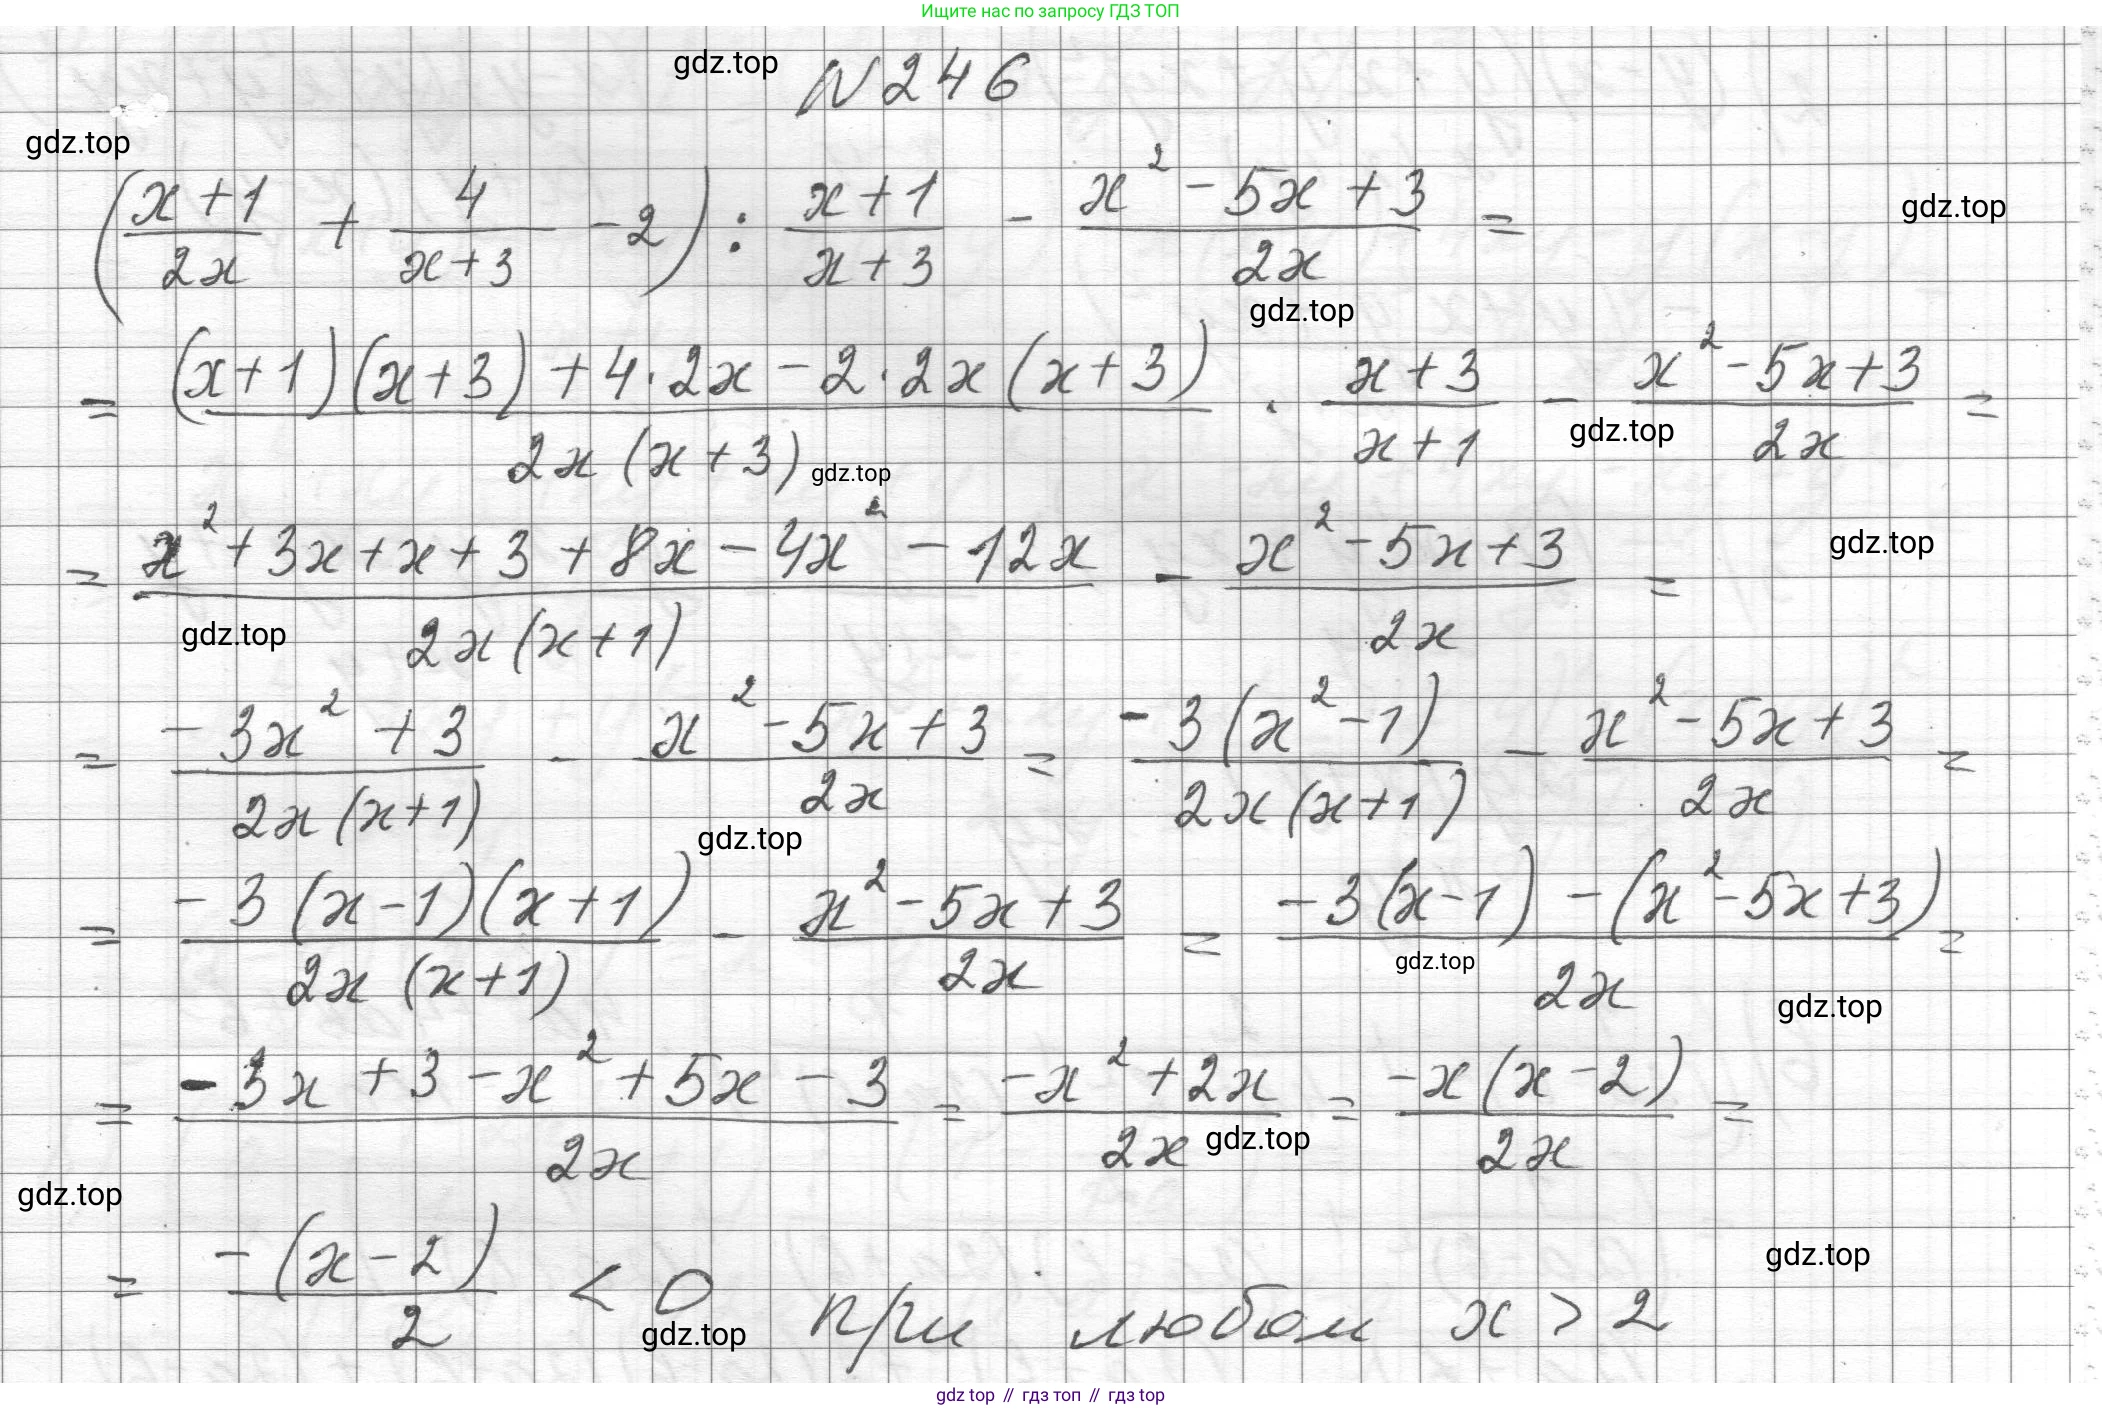 Ищите нас по запросу ГДЗ ТОП
gdz.top
N 246
gdz.top
((x+1)/(2x) + 4/(x+3) - 2) : (x+1)/(x+3) - (x² - 5x + 3)/(2x) =
gdz.top
gdz.top
= ((x+1)(x+3) + 4·2x - 2·2x(x+3))/(2x(x+3)) · (x+3)/(x+1) - (x² - 5x + 3)/(2x) =
gdz.top
gdz.top
= (x² + 3x + x + 3 + 8x - 4x² - 12x)/(2x(x+1)) - (x² - 5x + 3)/(2x) =
gdz.top
gdz.top
= (-3x² + 3)/(2x(x+1)) - (x² - 5x + 3)/(2x) = (-3(x² - 1))/(2x(x+1)) - (x² - 5x + 3)/(2x) =
gdz.top
= (-3(x-1)(x+1))/(2x(x+1)) - (x² - 5x + 3)/(2x) = (-3(x-1) - (x² - 5x + 3))/(2x) =
gdz.top
gdz.top
= (-3x + 3 - x² + 5x - 3)/(2x) = (-x² + 2x)/(2x) = (-x(x-2))/(2x) =
gdz.top
gdz.top
= (-(x-2))/2 < 0 при любом x > 2
gdz.top
gdz.top
gdz top // гдз топ // гдз top